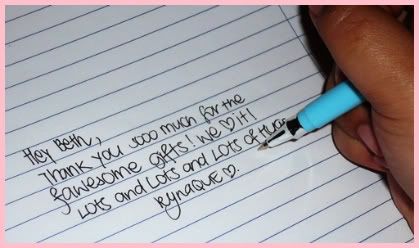 Hey Beth,
Thank you sooo much for the
fawesome gifts! We ♡ it!
Lots and Lots and Lots of
RynaQUE ♡.